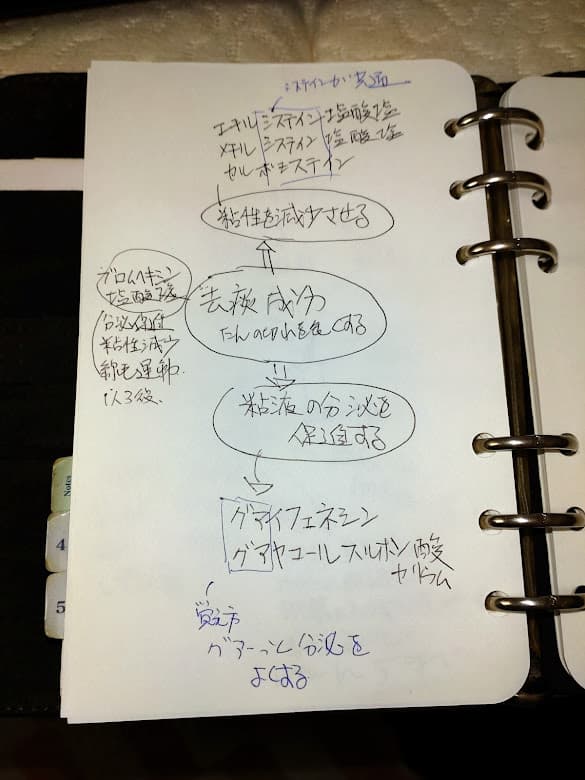 システインが共通
エチルシステイン塩酸塩
メチルシステイン塩酸塩
カルボシステイン
粘性を減少させる
ブロムヘキシン
塩酸塩
分泌促進
粘性減少
線毛運動
1人3役
去痰成分
たんの切れを良くする
粘液の分泌を
促進する
グアイフェネシン
グアヤコールスルホン酸
カリウム
覚え方
グアーっと分泌を
よくする
Notes
4
5